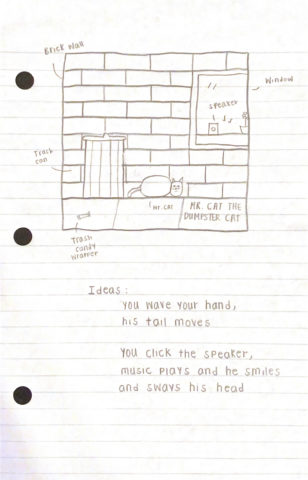 Brick Wall
Window
speaker
Trash
can
Mr. Cat
MR. CAT THE
DUMPSTER CAT
Trash
candy
wrapper
Ideas:
You wave your hand,
his tail moves
You click the speaker,
music plays and he smiles
and sways his head